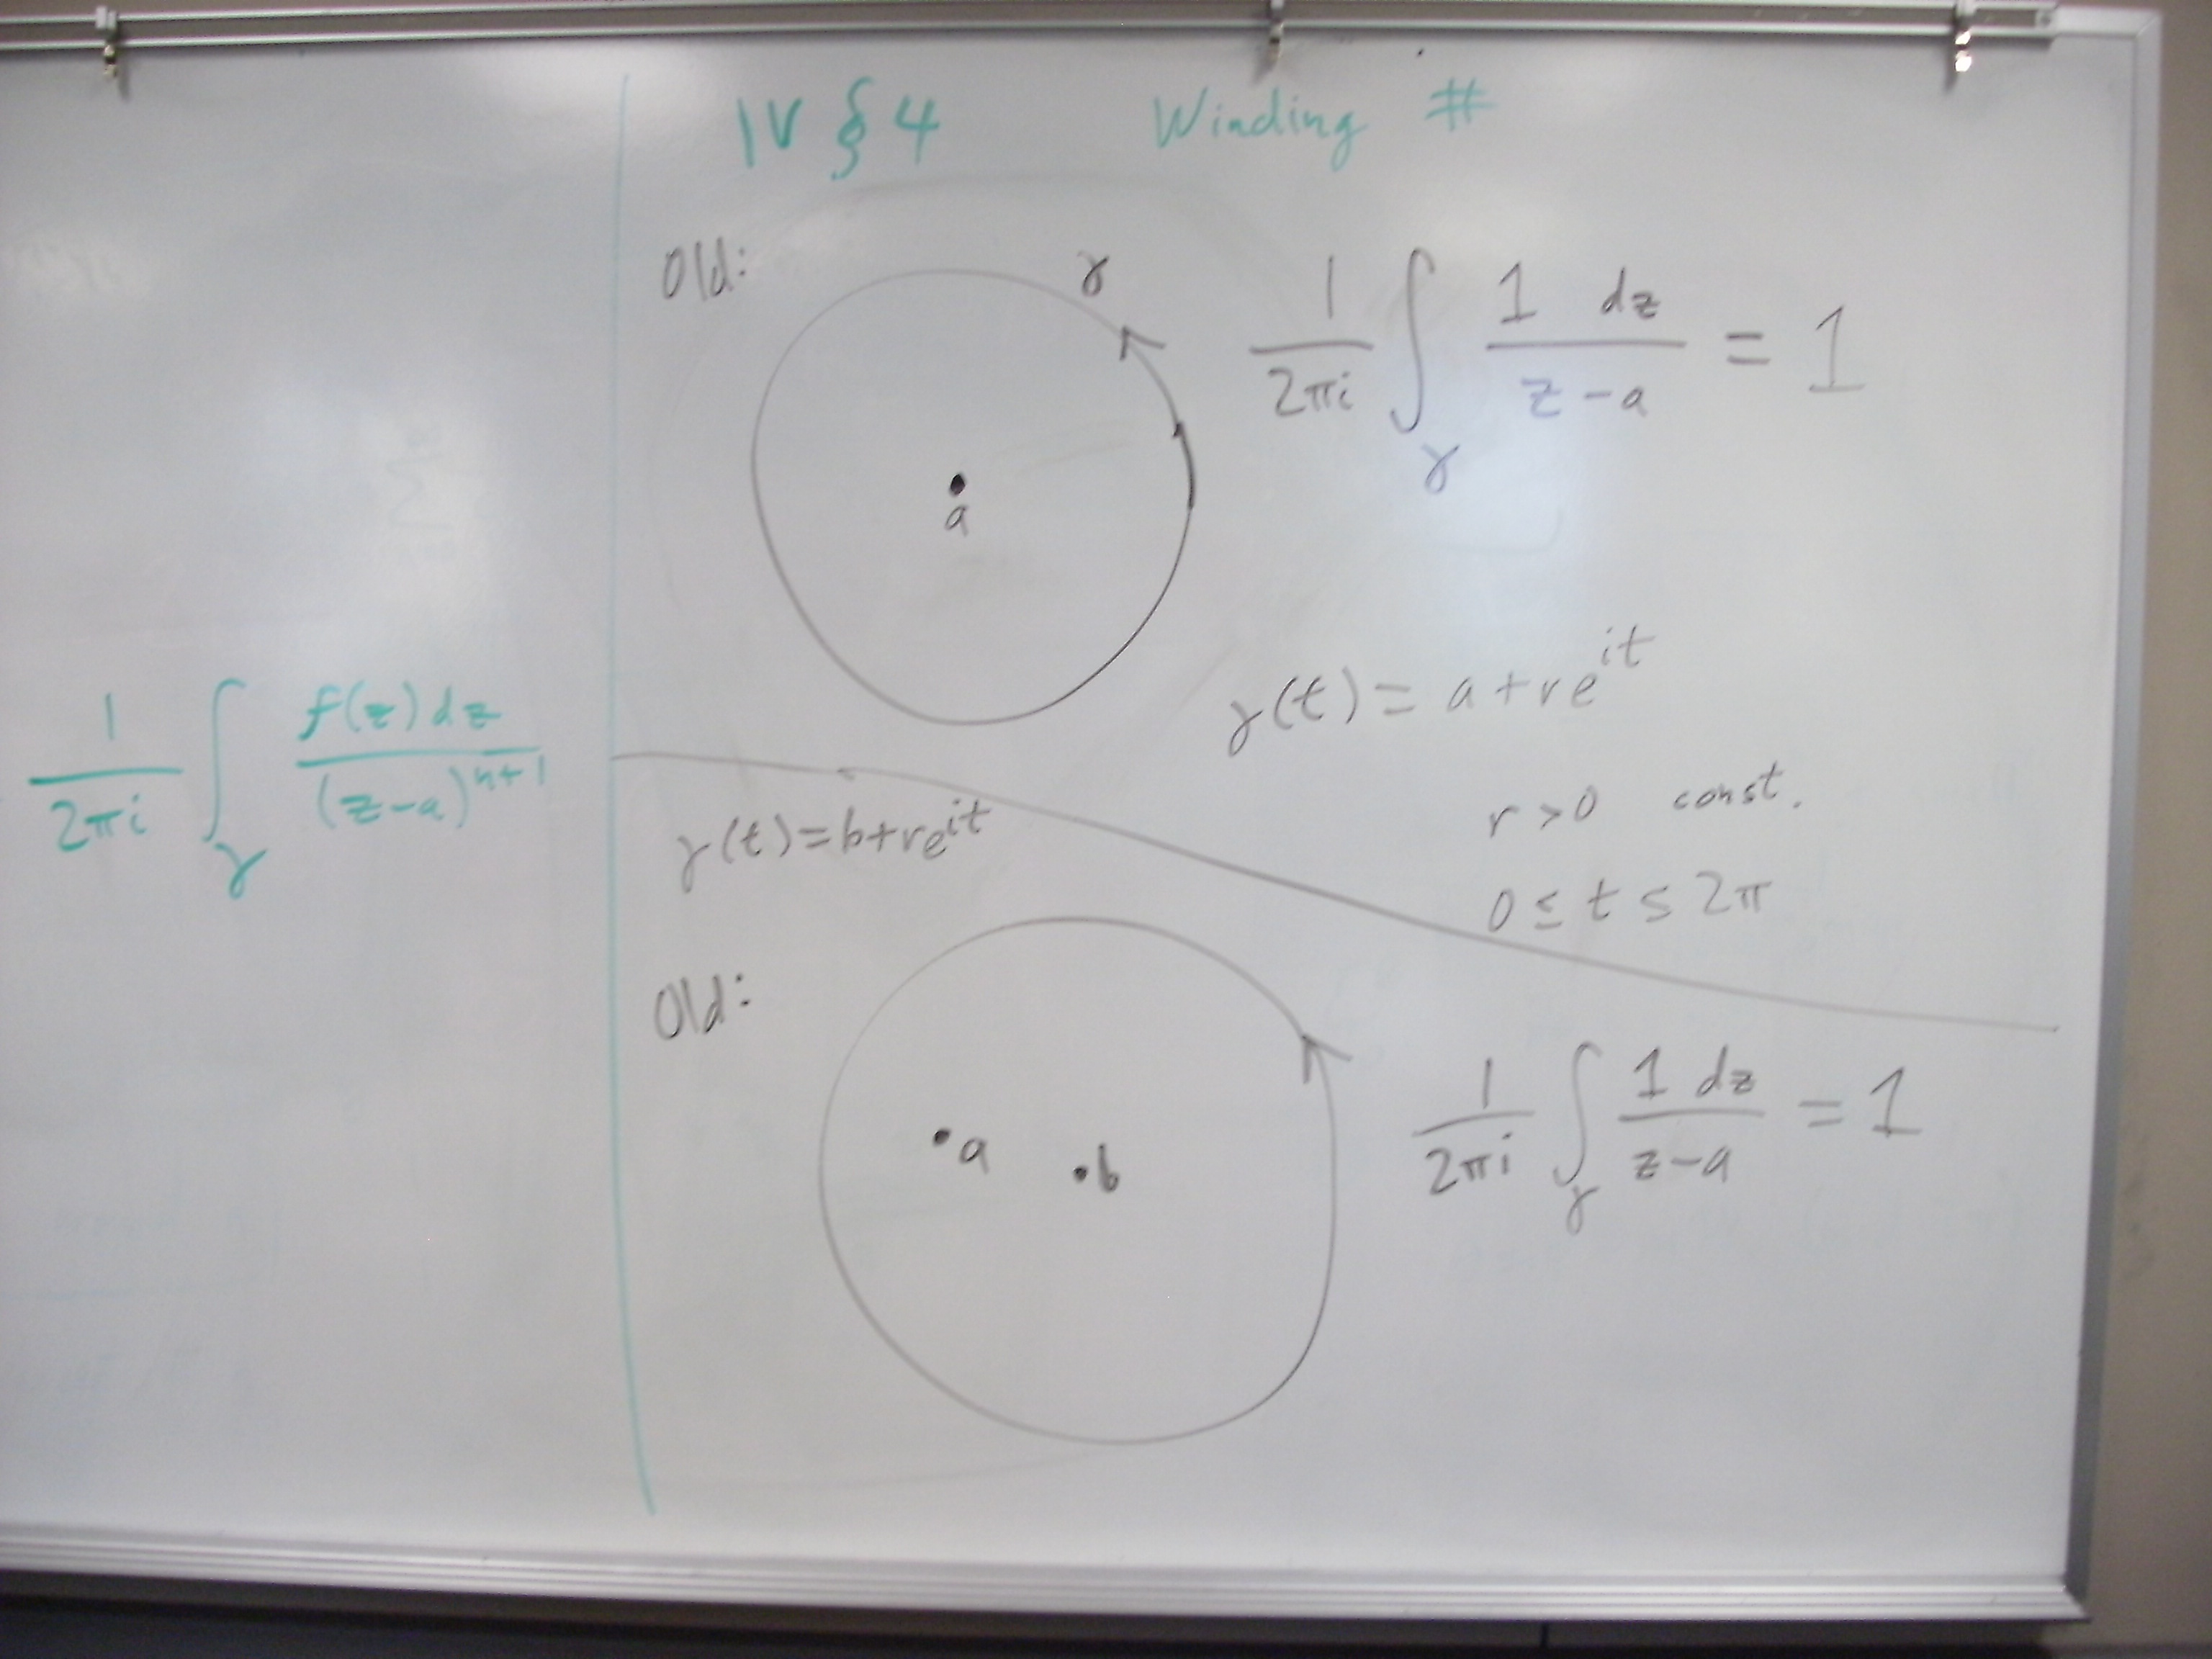 1/(2πi) ∫_γ f(z) dz/(z-a)^(n+1)
IV § 4 Winding #
Old:
γ
a
1/(2πi) ∫_γ 1 dz/(z-a) = 1
γ(t) = a + re^(it)
r > 0 const.
0 ≤ t ≤ 2π
γ(t) = b + re^(it)
Old:
a
b
1/(2πi) ∫_γ 1 dz/(z-a) = 1